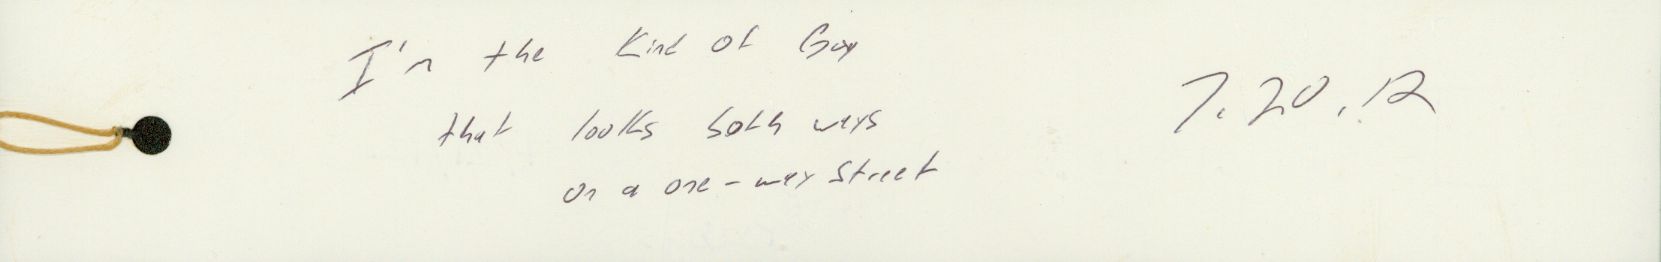 I'm the kind of Guy
that looks both ways
on a one-way street
7.20.12